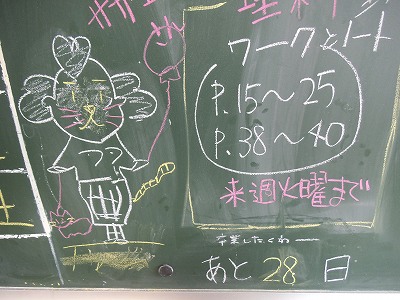 ワークとノート
P.15〜25
P.38〜40
来週火曜まで
卒業したくねー
あと28日